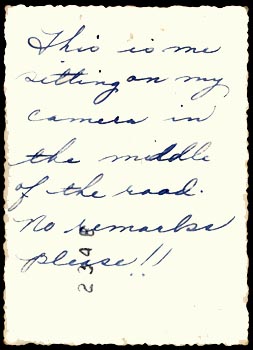 This is me
sitting on my
camera in
the middle
of the road.
No remarks
please!!
2348